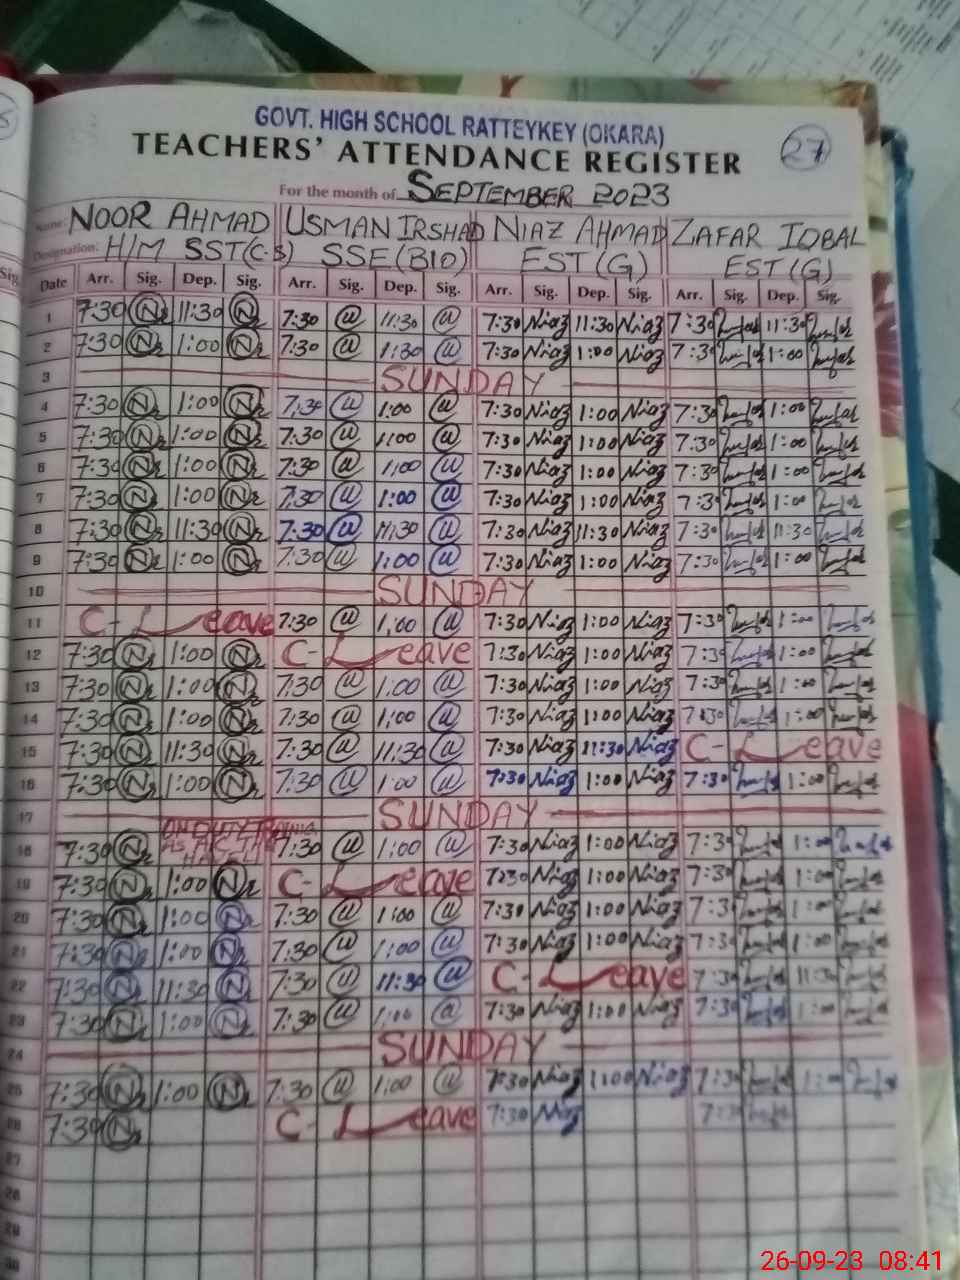 GOVT. HIGH SCHOOL RATTEYKEY (OKARA)
27
TEACHERS' ATTENDANCE REGISTER
For the month of SEPTEMBER 2023
Name: NOOR AHMAD USMAN IRSHAD NIAZ AHMAD ZAFAR IQBAL
Designation: H/M SST(C.S) SSE(BIO) EST(G) EST(G)
Date Arr. Sig. Dep. Sig. Arr. Sig. Dep. Sig. Arr. Sig. Dep. Sig. Arr. Sig. Dep. Sig.
1 7:30 N 11:30 N 7:30 U 11:30 U 7:30 Niaz 11:30 Niaz 7:30 11:30
2 7:30 N 1:00 N 7:30 U 1:30 U 7:30 Niaz 1:00 Niaz 7:30 1:00
3 SUNDAY
4 7:30 N 1:00 N 7:30 U 1:00 U 7:30 Niaz 1:00 Niaz 7:30 1:00
5 7:30 N 1:00 N 7:30 U 1:00 U 7:30 Niaz 1:00 Niaz 7:30 1:00
6 7:30 N 1:00 N 7:30 U 1:00 U 7:30 Niaz 1:00 Niaz 7:30 1:00
7 7:30 N 1:00 N 7:30 U 1:00 U 7:30 Niaz 1:00 Niaz 7:30 1:00
8 7:30 N 11:30 N 7:30 U 11:30 U 7:30 Niaz 11:30 Niaz 7:30 11:30
9 7:30 N 1:00 N 7:30 U 1:00 U 7:30 Niaz 1:00 Niaz 7:30 1:00
10 SUNDAY
11 C-Leave 7:30 U 1:00 U 7:30 Niaz 1:00 Niaz 7:30 1:00
12 7:30 N 1:00 N C-Leave 7:30 Niaz 1:00 Niaz 7:30 1:00
13 7:30 N 1:00 N 7:30 U 1:00 U 7:30 Niaz 1:00 Niaz 7:30 1:00
14 7:30 N 1:00 N 7:30 U 1:00 U 7:30 Niaz 1:00 Niaz 7:30 1:00
15 7:30 N 11:30 N 7:30 U 11:30 U 7:30 Niaz 11:30 Niaz C-Leave
16 7:30 N 1:00 N 7:30 U 1:00 U 7:30 Niaz 1:00 Niaz 7:30 1:00
17 SUNDAY
18 7:30 N ON DUTY AS 7:30 U 1:00 U 7:30 Niaz 1:00 Niaz 7:30 1:00
19 7:30 N 1:00 N C-Leave 7:30 Niaz 1:00 Niaz 7:30 1:00
20 7:30 N 1:00 N 7:30 U 1:00 U 7:30 Niaz 1:00 Niaz 7:30 1:00
21 7:30 N 1:00 N 7:30 U 1:00 U 7:30 Niaz 1:00 Niaz 7:30 1:00
22 7:30 N 11:30 N 7:30 U 11:30 U C-Leave 7:30 11:30
23 7:30 N 1:00 N 7:30 U 1:00 U 7:30 Niaz 1:00 Niaz 7:30 1:00
24 SUNDAY
25 7:30 N 1:00 N 7:30 U 1:00 U 7:30 Niaz 1:00 Niaz 7:30 1:00
26 7:30 N C-Leave 7:30 Niaz 7:30
27
28
29
30
26-09-23 08:41